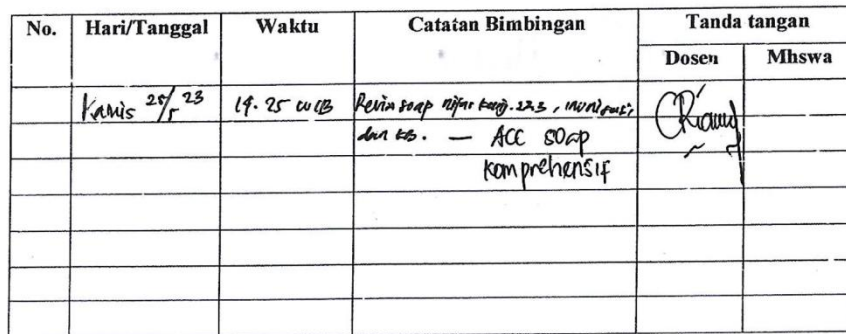 No. Hari/Tanggal Waktu Catatan Bimbingan Tanda tangan
Dosen Mhswa
Kamis 25/5 23 19.25 WIB Revisi soap nifas kunj. 2&3, imunisasi,
dan KB. — ACC SOAP
Komprehensif